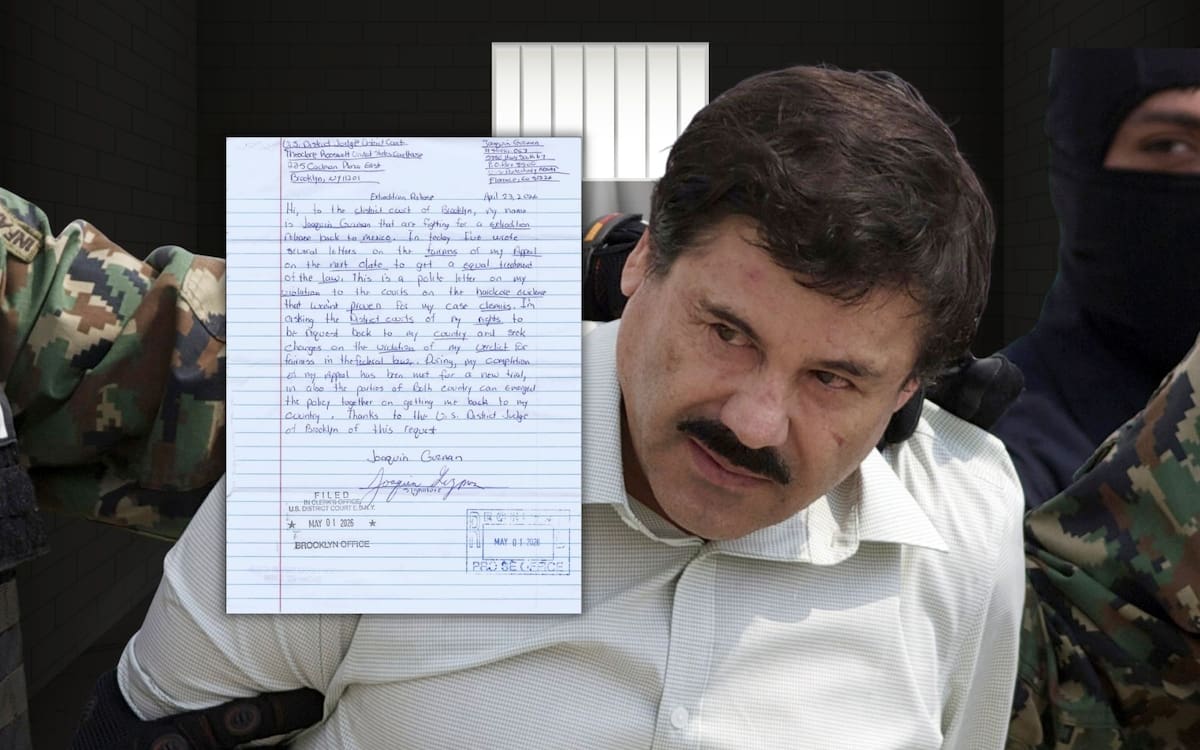 U.S. District Judge District Court
Theodore Roosevelt United States Courthouse
225 Cadman Plaza East
Brooklyn, NY 11201
Joaquin Guzman
Florence, Co 81226
Extradition Release April 23, 2026
Hi, to the district court of Brooklyn, my name
is Joaquin Guzman that are fighting for a extradition
release back to mexico. In today I've wrote
several letters on the fairness of my Appeal
on the next date to get a equal treatment
of the law. This is a polite letter on my
violation to the courts on the hardcore evidence
that wasn't proven for my case claims. I'm
asking the District courts of my rights to
be request back to my country and seek
changes on the violation of my verdict for
fairness in the federal law. During, my completion
of my Appeal has been met for a new trial,
in also the parties of Both country can
the policy together on getting me back to my
country. Thanks to the U.S. District Judge
of Brooklyn of this request
Joaquin Guzman
Signature
FILED
IN CLERK'S OFFICE
U.S. DISTRICT COURT E.D.N.Y.
★ MAY 01 2026 ★
BROOKLYN OFFICE
MAY 01 2026
PRO SE OFFICE